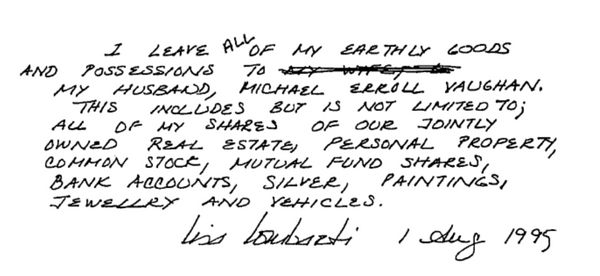 I LEAVE ALL OF MY EARTHLY GOODS
AND POSSESSIONS TO MY WIFE,
MY HUSBAND, MICHAEL ERROLL VAUGHAN.
THIS INCLUDES BUT IS NOT LIMITED TO;
ALL OF MY SHARES OF OUR JOINTLY
OWNED REAL ESTATE, PERSONAL PROPERTY,
COMMON STOCK, MUTUAL FUND SHARES,
BANK ACCOUNTS, SILVER, PAINTINGS,
JEWELLRY AND VEHICLES.
1 Aug 1995